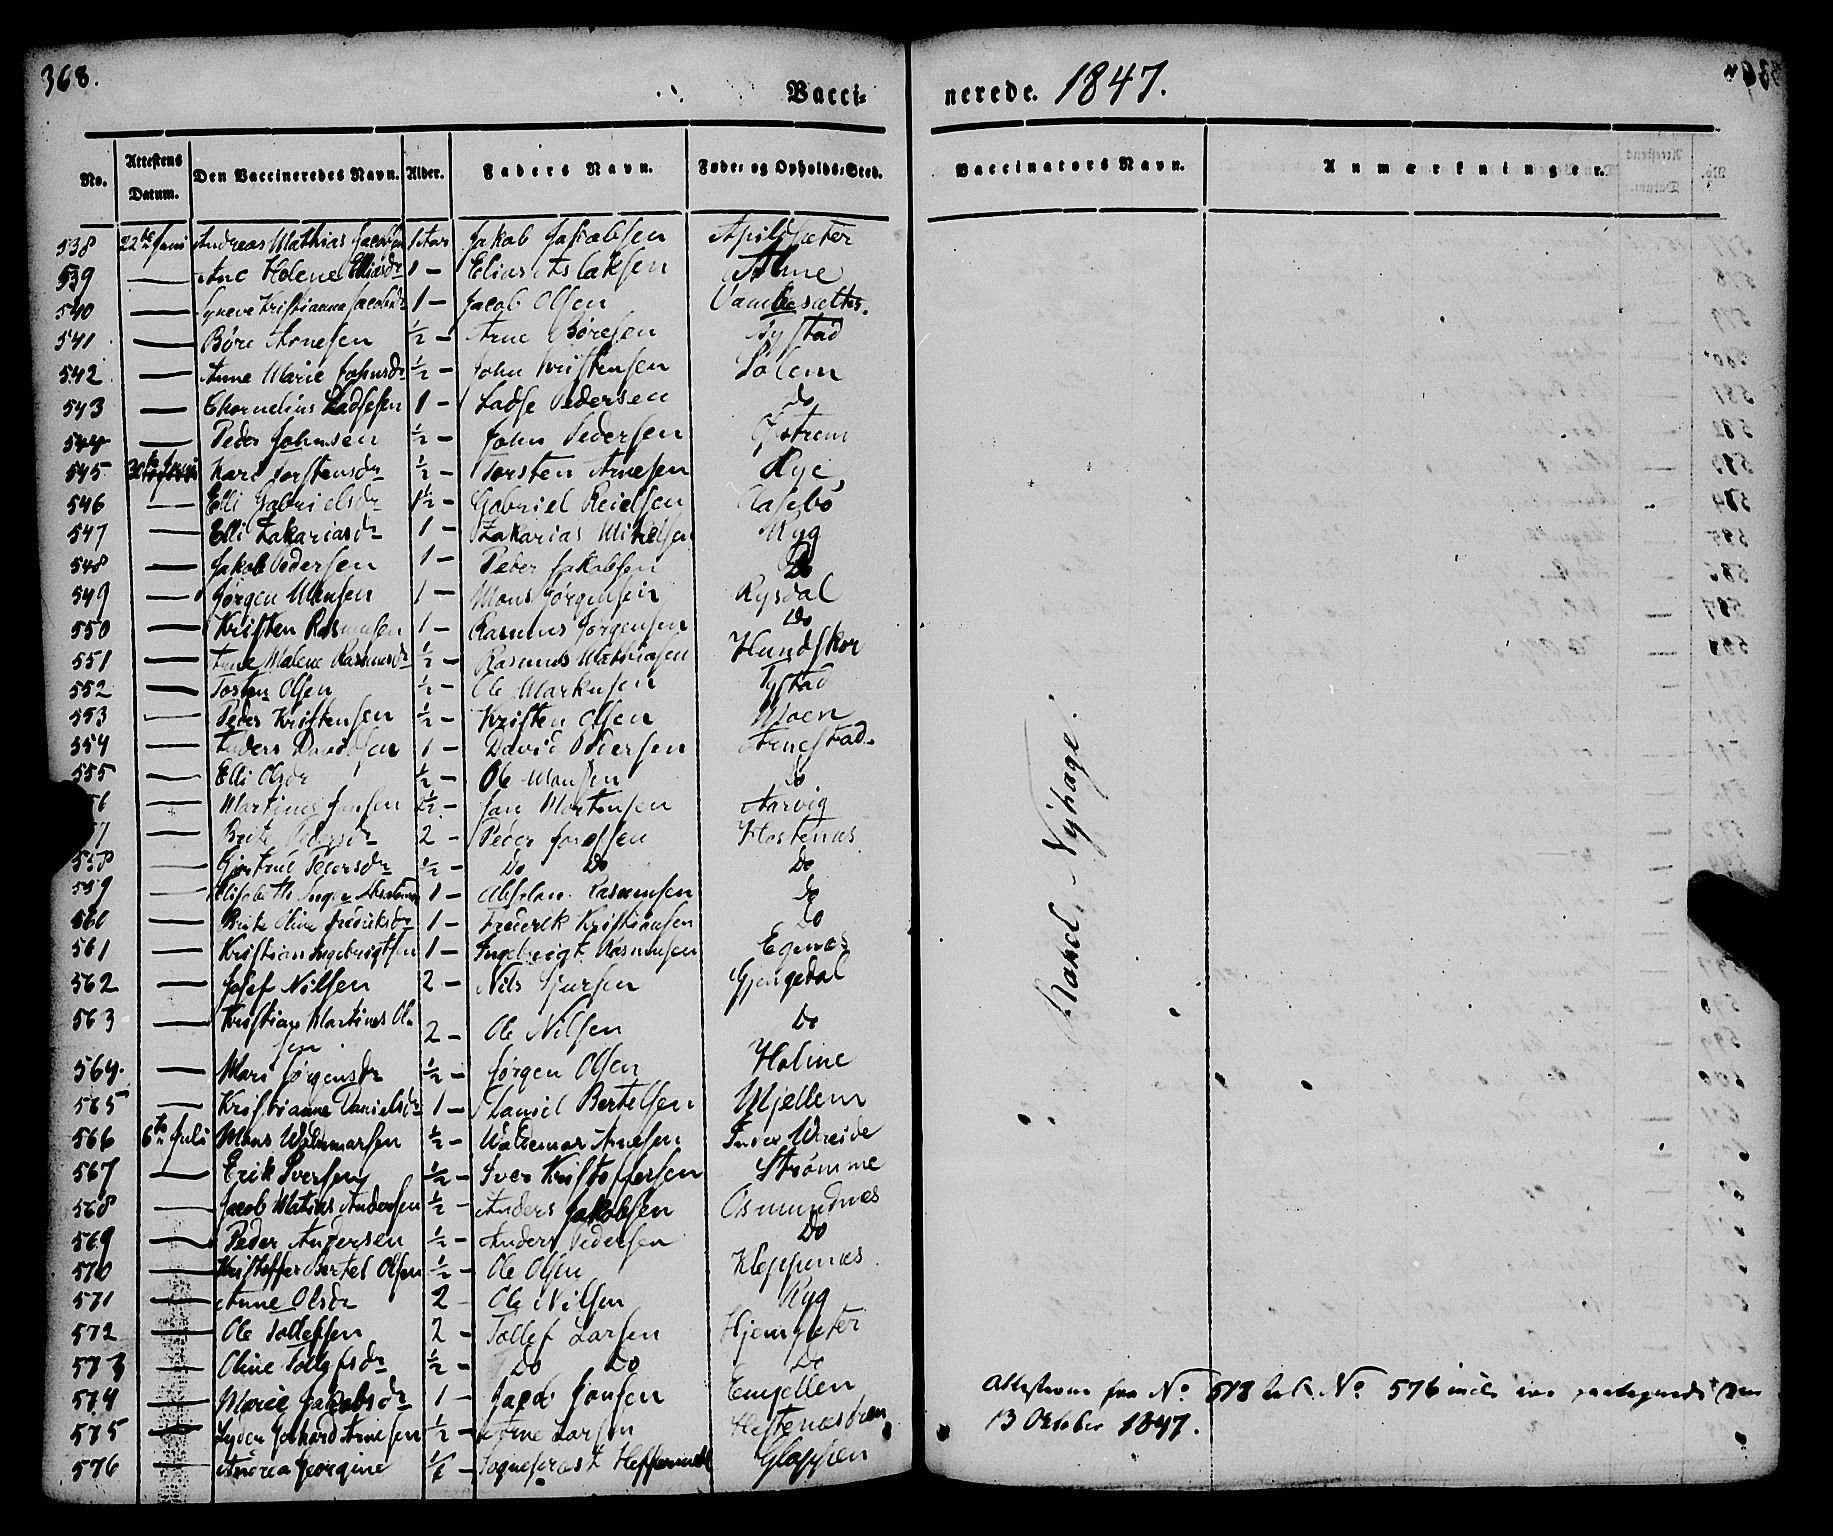 368.
Vacci= nerede. 1847.
No. Attestens Datum. Den Vaccineredes Navn. Alder. Faders Navn. Føde- og Opholds-Sted. Vaccinators Navn. Anmærkninger.
538 22de Juni Andreas Mathias Jacobsen 1 Aar Jakob Jakobsen Apildsæter
539 — Ane Helene Eliasdr 1 — Elias Aslaksen Alme
540 — Syneve Kristianna Jacobsdr 1 — Jacob Olsen
541 — Børe Arnesen ½ — Arne Børesen Tystad
542 — Anne Marie Johnsdr ½ — John Kristensen Solem
543 — Chornelius Ladsesen 1 — Ladse Pedersen do
544 — Peder Johnsen ½ — John Pedersen
545 30te Juni Kari Torstensdr ½ — Torsten Arnesen Rye
546 — Elli Gabrielsdr 1½ — Gabriel Reielsen Aasebø
547 — Elli Zakariasdr 1 — Zakarias Mikelsen Ryg
548 — Jakob Pedersen 1 — Peder Jakobsen Do
549 — Jørgen Monsen 1 — Mons Jørgensen Rysdal
550 — Kristen Rasmusen 1 — Rasmus Jørgensen Do
551 — Ane Malene Rasmusdr ½ — Rasmus Mathiasen Hundskor
552 — Tosten Olsen ½ — Ole Markusen Tystad
553 — Peder Kristensen ½ — Kristen Olsen Moen
554 — Anders Davidsen 1 — David Pedersen Arnestad
555 — Elli Olsdr ½ — Ole Monsen do
— Martines Jansen ½ — Jan Mortensen Aarvig
— Brite Pedersdr 2 — Peder Josefsen Hestenæs
558 — Gjertrud Pedersdr ½ — Do Do Do
559 — Elisabeth Inger 1 — Absolon Rasmusen Do
560 — Brite Oline Fredriksdr 1 — Frederik Kristiansen Do
561 — Kristian Ingebrigtsen 1 — Ingebrigt Rasmusen Egenæs
562 — Josef Nilsen 2 — Nils Sjursen Gjengedal
563 — Kristian Martines Ol-
sen 2 — Ole Nilsen Do
564. — Mari Jørgensdr ½ — Jørgen Olsen Holme
565 — Kristianne Danielsdr 1 — Daniel Bertelsen Mjellem
566 6te Juli Mons Waldemarsen ½ — Waldemar Arnesen Indre Wereide
567 — Erik Iversen ½ — Iver Kristoffersen Strømme
568 — Jacob Matias Andersen ½ — Anders Jakobsen Osmundnæs
569 — Peder Andersen ½ — Anders Pedersen Do
570 — Kristoffer Bertel Olsen ½ — Ole Olsen Kleppenæs
571 — Anne Olsdr 2 — Ole Nilsen Ryg
572 — Ole Tollefsen 2 — Tollef Larsen Hjemsæter
573 — Oline Tollefsdr ½ — Do Do Do
574 — Marie Jakobsdr 1 — Jacob Jonsen Emhjellen
575 — Arnesen ½ — Arne Larsen
576 — Andrea Georgine Sogneprest Gloppen
Rakel Nyhage.
Attesterne fra No 518 til No 576 incl. ere den
13 Oktober 1847.